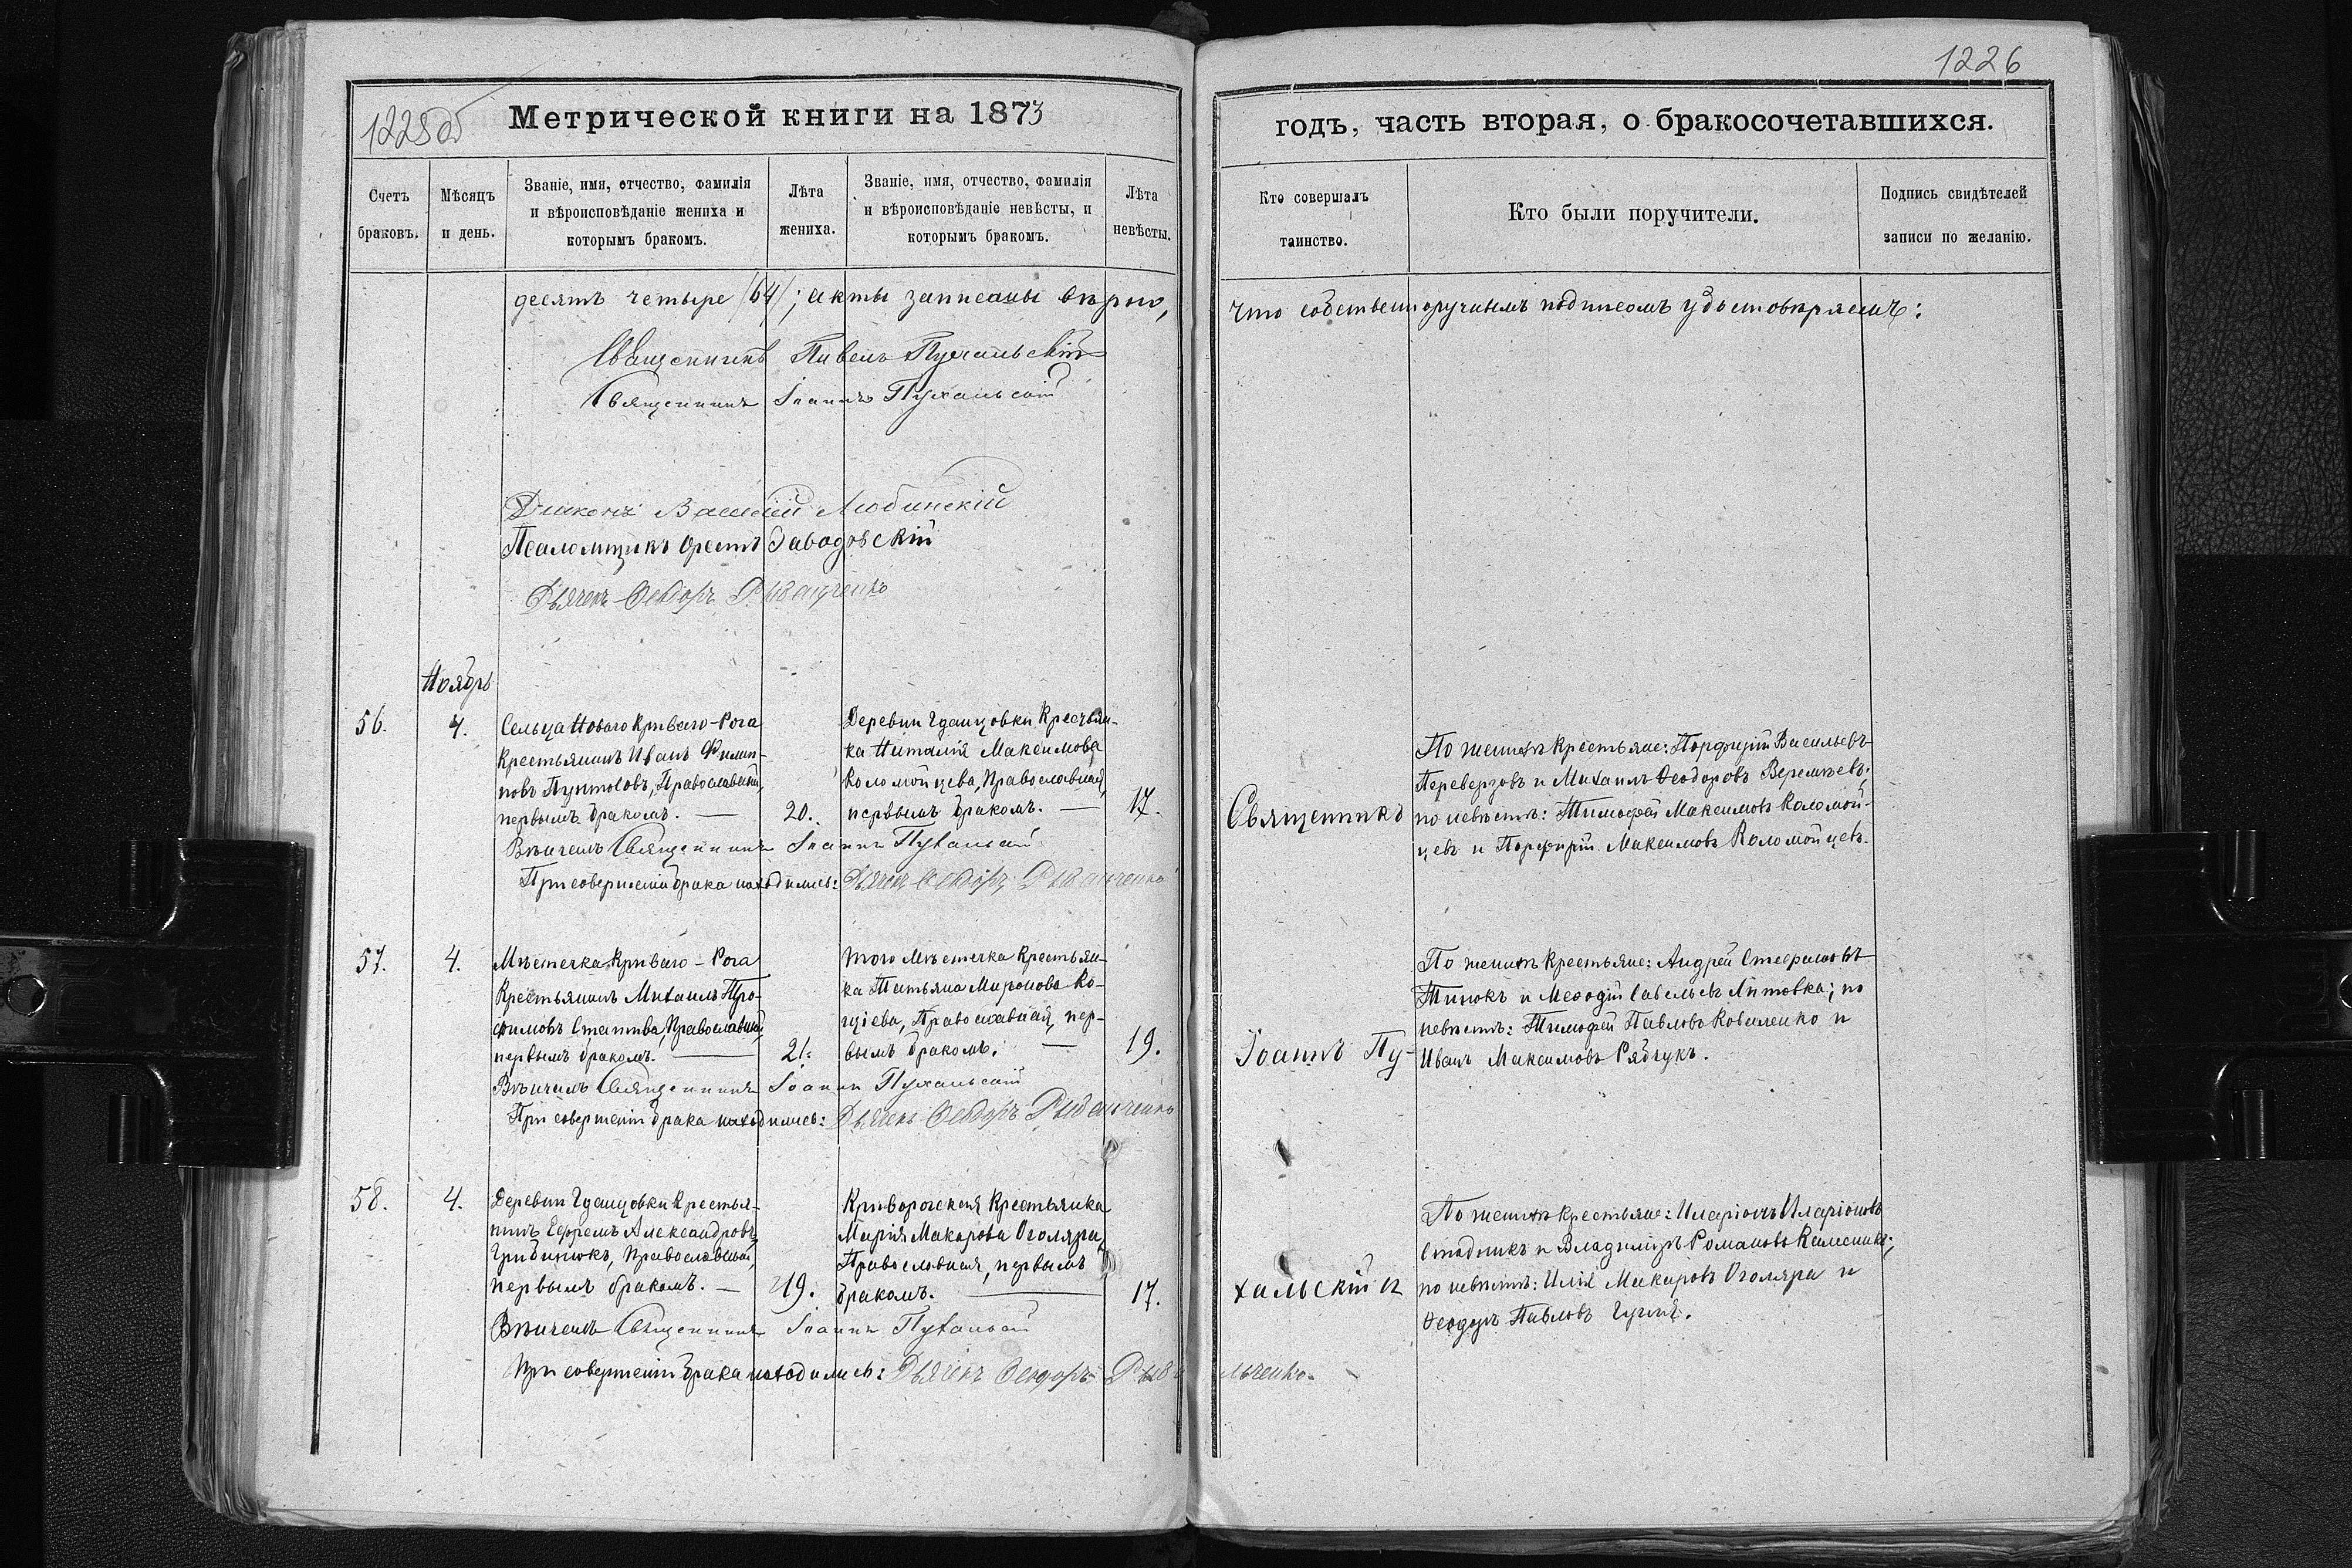 1225об
Метрической книги на 1873
Счетъ браковъ.
Мѣсяцъ и день.
Званіе, имя, отчество, фамилія
и вѣроисповѣданіе жениха и
которымъ бракомъ.
Лѣта жениха.
Званіе, имя, отчество, фамилія
и вѣроисповѣданіе невѣсты, и
которымъ бракомъ.
Лѣта невѣсты.
десять четыре /64/; акты записаны вѣрно,
Священникъ Павелъ Пухальскій
Священникъ Іоаннъ Пухальскій
Діаконъ Василій Любинскій
Псаломщикъ Орестъ Заводовскій
Дьячекъ Ѳеодоръ
Ноябрь
56.
4.
Сельца Новаго Криваго-Рога
Крестьянинъ Иванъ Филип-
повъ Православный,
первымъ бракомъ. —
20.
Деревни Гданцовки Крестьян-
ка Наталія Максимова
Коломойцева, Православная,
первымъ бракомъ. —
17.
Вѣнчалъ Священникъ Іоаннъ Пухальскій
При совершеніи брака находились: Дьячекъ Ѳеодоръ
57.
4.
Мѣстечка Криваго-Рога
Крестьянинъ Михаилъ Тро-
фимовъ Православный,
первымъ бракомъ. —
21.
Того Мѣстечка Крестьян-
ка Татьяна Миронова Ко-
цієва, Православная, пер-
вымъ бракомъ. —
19.
Вѣнчалъ Священникъ Іоаннъ Пухальскій
При совершеніи брака находились: Дьячекъ Ѳеодоръ
58.
4.
Деревни Гданцовки Крестья-
нинъ Ефремъ Александровъ
Грибинюкъ, Православный,
первымъ бракомъ. —
19.
Криворожская Крестьянка
Марія Макарова Оголяра,
Православная, первымъ
бракомъ. —
17.
Вѣнчалъ Священникъ Іоаннъ Пухальскій
При совершеніи брака находились: Дьячекъ Ѳеодоръ
1226
годъ, часть вторая, о бракосочетавшихся.
Кто совершалъ таинство.
Кто были поручители.
Подпись свидѣтелей
записи по желанію.
что собственноручнымъ подписомъ удостовѣряемъ:
Священникъ
Іоаннъ Пу-
хальскій и
По женихѣ крестьяне: Порфирій Васильевъ
Переверзовъ и Михаилъ Ѳеодоровъ Веремѣевъ;
по невѣстѣ: Тимофей Максимовъ Коломой-
цевъ и Порфирій Максимовъ Коломойцевъ.
По женихѣ крестьяне: Андрей Стефановъ
Тинокъ и Меѳодій Савельевъ Литовка; по
невѣстѣ: Тимофей Павловъ Коваленко и
Иванъ Максимовъ Рябчукъ.
По женихѣ крестьяне: Иларіонъ Иларіоновъ
Стадникъ и Владиміръ Романовъ
по невѣстѣ: Илія Макаровъ Оголяра и
Ѳеодоръ Павловъ